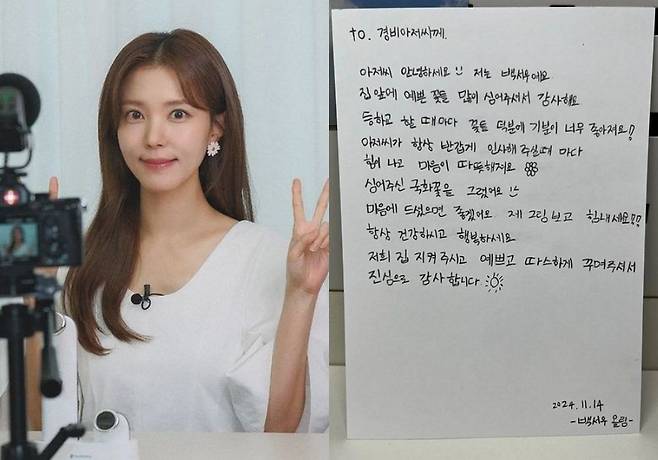 to. 경비아저씨께.
아저씨 안녕하세요 저는 백서우예요
집 앞에 예쁜 꽃들 많이 심어주셔서 감사해요
등하교 할 때마다 꽃들 덕분에 기분이 너무 좋아져요!
아저씨가 항상 반갑게 인사해 주실때 마다
힘이 나고 마음이 따뜻해져요
심어주신 국화꽃을 그렸어요
마음에 드셨으면 좋겠어요 제 그림 보고 힘내세요!!
항상 건강하시고 행복하세요
저희 집 지켜주시고 예쁘고 따스하게 꾸며주셔서
진심으로 감사합니다
2024.11.14
-백서우 올림-